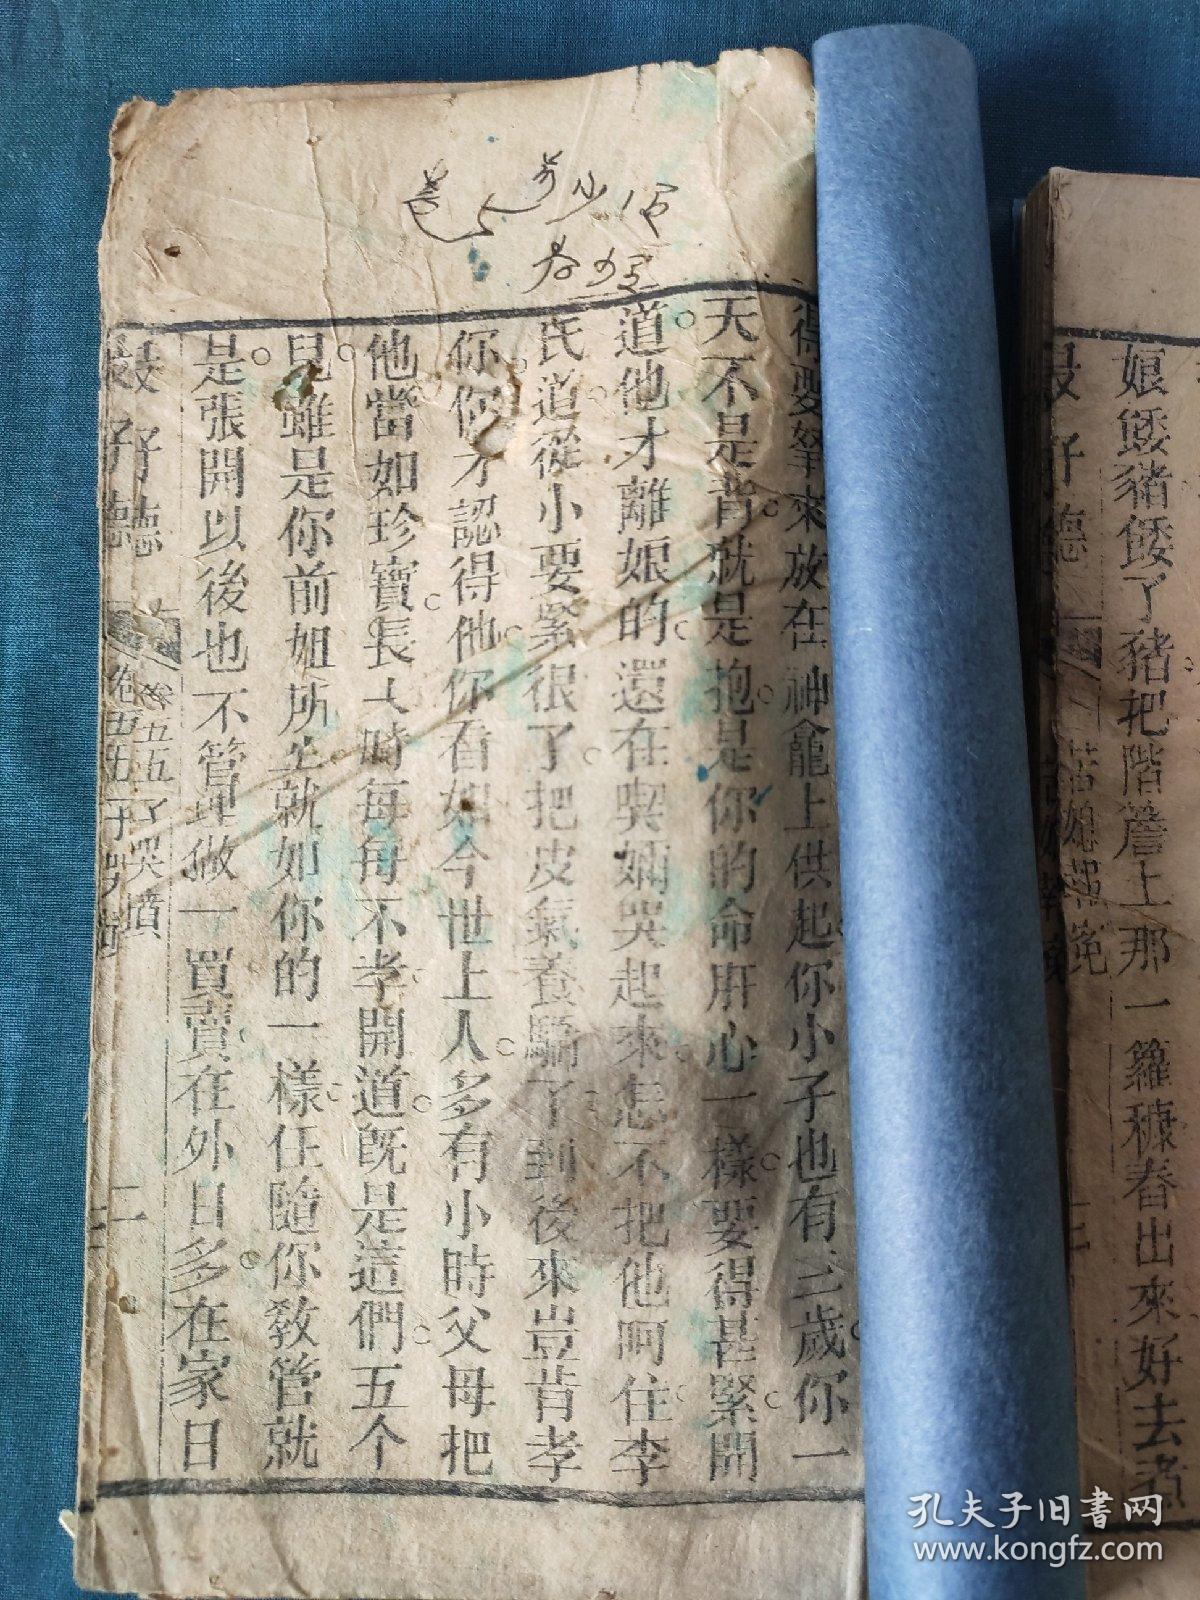 得要拏來放在神龕上供起你小子也有三歲你一
天不是背就是抱是你的命肝心一樣要得甚緊開
道他才離娘的還在喫嬭哭起來怎不把他呵住李
氏道從小要緊很了把皮氣養驕了到後來豈肯孝
你你才認得他你看如今世上人多有小時父母把
他當如珍寶長大時每每不孝開道既是這們五个
兒雖是你前姐所生就如你的一樣任隨你教管就
是張開以後也不管理做一買賣在外日多在家日
卷五五子哭墳
二
娘餧豬餧了豬把階簷上那一籮穅舂出來好去煮
苦媳
孔夫子旧书网
www.kongfz.com